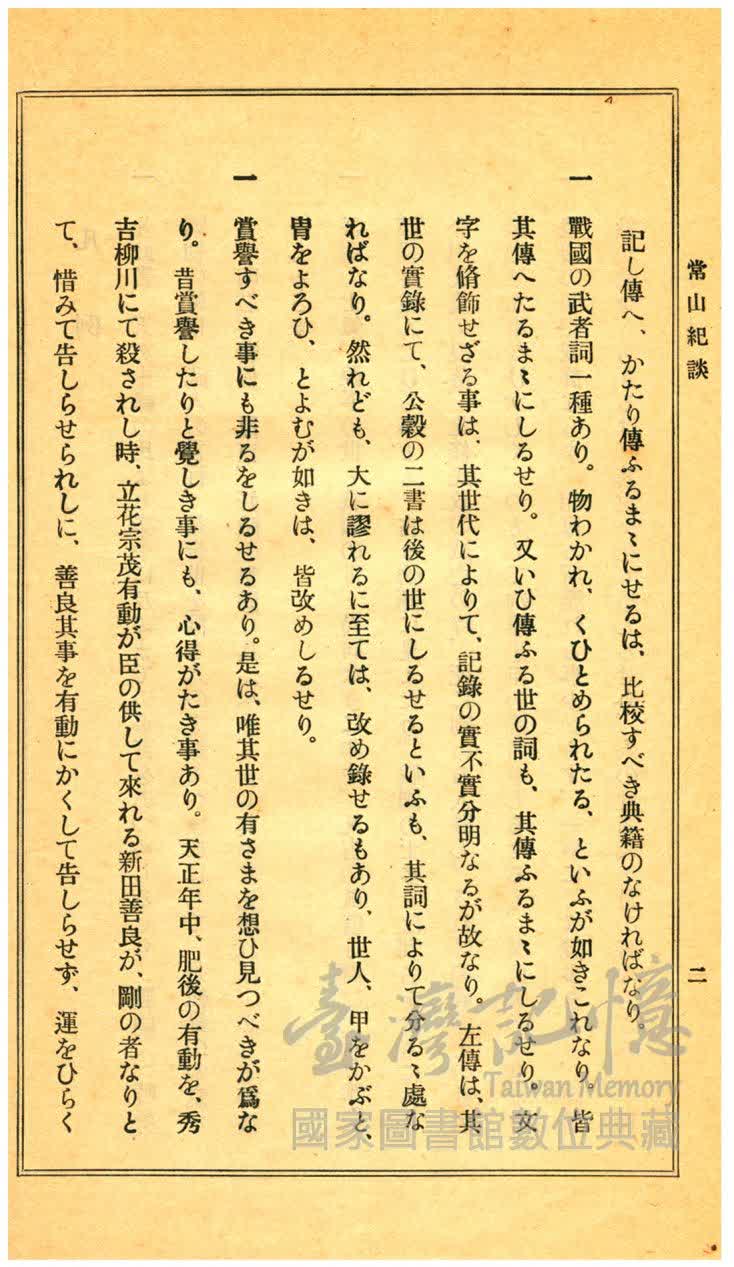 常山紀談
二
記し傳へ、かたり傳ふるまゝにせるは、比校すべき典籍のなければなり。
一 戰國の武者詞一種あり。物わかれ、くひとめられたる、といふが如きこれなり。皆
其傳へたるまゝにしるせり。又いひ傳ふる世の詞も、其傳ふるまゝにしるせり。文
字を脩飾せざる事は、其世代によりて、記錄の實不實分明なるが故なり。左傳は、其
世の實錄にて、公穀の二書は後の世にしるせるといふも、其詞によりて分るゝ處な
ればなり。然れども、大に謬れるに至ては、改め錄せるもあり、世人、甲をかぶと、
冑をよろひ、とよむが如きは、皆改めしるせり。
一 賞譽すべき事にも非るをしるせるあり。是は、唯其世の有さまを想ひ見つべきが爲な
り。昔賞譽したりと覺しき事にも、心得がたき事あり。天正年中、肥後の有動を、秀
吉柳川にて殺されし時、立花宗茂有動が臣の供して來れる新田善良が、剛の者なりと
て、惜みて告しらせられしに、善良其事を有動にかくして告しらせず、運をひらく
臺灣記憶
Taiwan Memory
國家圖書館數位典藏